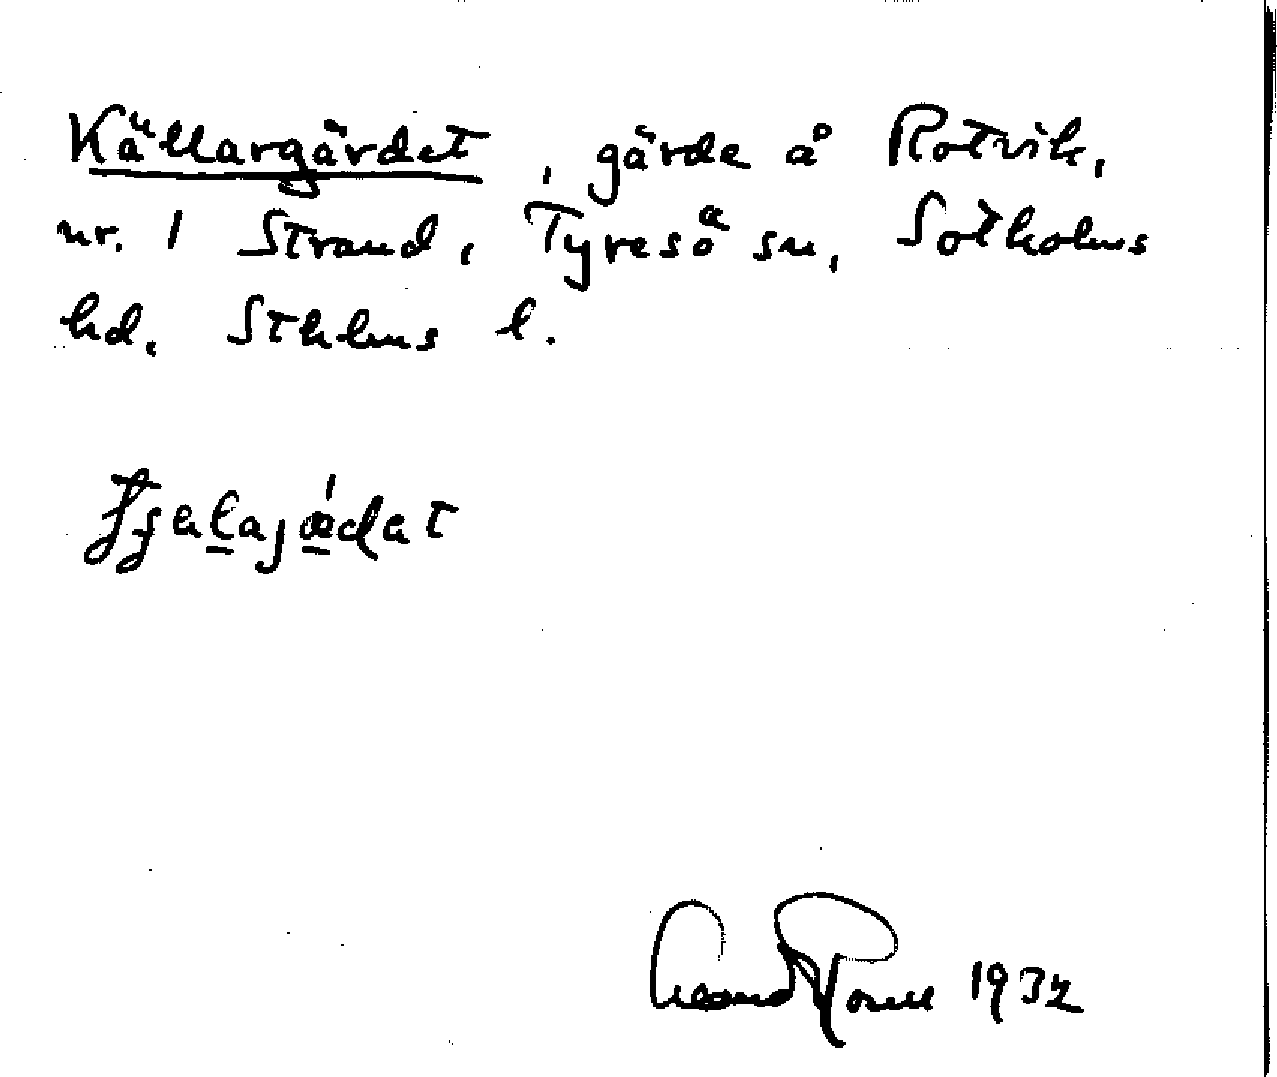 Källargärdet, gärde å Rotvik,
nr. 1 Strand, Tyresö sn, Sotholms
hd. Sthlms l.
1932